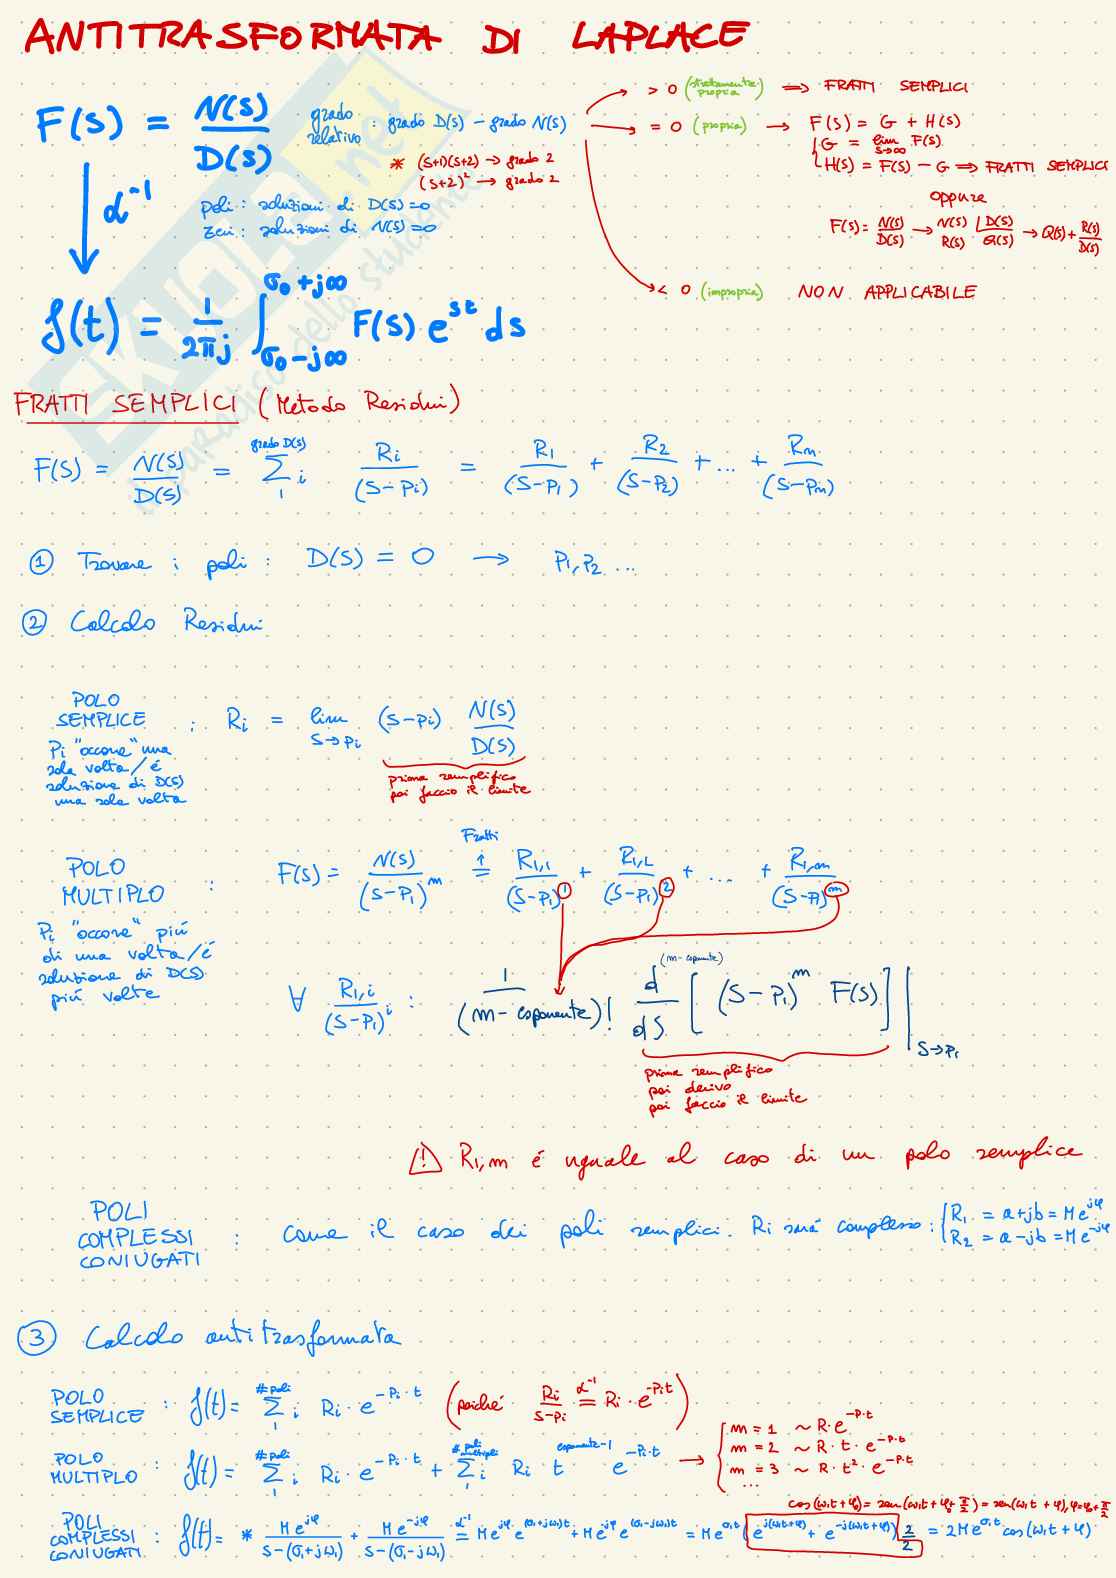 ANTITRASFORMATA DI LAPLACE
F(s) = N(s)/D(s)
grado relativo : grado D(s) - grado N(s)
* (s+1)(s+2) → grado 2
(s+2)² → grado 2
poli : soluzioni di D(s)=0
zeri : soluzioni di N(s)=0
> 0 (strettamente propria) ⟹ FRATTI SEMPLICI
= 0 (propria) → F(s) = G + H(s)
G = lim s→∞ F(s)
H(s) = F(s) - G ⟹ FRATTI SEMPLICI
oppure
F(s) = N(s)/D(s) → N(s) | D(s) R(s) Q(s) → Q(s) + R(s)/D(s)
< 0 (impropria) NON APPLICABILE
↓ ℒ⁻¹
f(t) = 1/2πj ∫ σ₀-j∞ σ₀+j∞ F(s) e^st ds
SKUOLA.net
il paradiso dello studente
FRATTI SEMPLICI (Metodo Residui)
F(s) = N(s)/D(s) = Σ_1^{grado D(s)} i Ri/(s-pi) = R1/(s-p1) + R2/(s-p2) + ... + Rm/(s-pm)
① Trovare i poli : D(s) = 0 → P1, P2 ...
② Calcolo Residui
POLO SEMPLICE : Ri = lim s→pi (s-pi) N(s)/D(s)
Pi "occorre" una
sola volta / é
soluzione di D(s)
una sola volta
prima semplifico
poi faccio il limite
POLO MULTIPLO : F(s) = N(s)/(s-p1)^m = Fratti R1,1/(s-p1)^1 + R1,2/(s-p1)^2 + ... + R1,m/(s-p1)^m
Pi "occorre" piú
di una volta / é
soluzione di D(s)
piú volte
∀ R1,i/(s-p1)^i : 1/(m-esponente)! d^(m-esponente)/ds [ (s-p1)^m F(s) ] | s→p1
prima semplifico
poi derivo
poi faccio il limite
⚠ R1,m é uguale al caso di un polo semplice
POLI COMPLESSI CONIUGATI : come il caso dei poli semplici. Ri sará complesso : { R1 = a+jb = M e^jφ
R2 = a-jb = M e^-jφ
③ Calcolo antitrasformata
POLO SEMPLICE : f(t) = Σ_1^{# poli} i Ri · e^{-Pi·t} (poiché Ri/(s-pi) =^{ℒ⁻¹} Ri · e^{-Pi t})
POLO MULTIPLO : f(t) = Σ_1^{# poli} i Ri · e^{-Pi·t} + Σ_1^{# poli multipli} i Ri t^{esponente-1} e^{-Pi·t} →
{ m = 1 ~ R · e^{-P·t}
m = 2 ~ R · t · e^{-P·t}
m = 3 ~ R · t² · e^{-P·t}
...
cos(ω1t+φ0) = sen(ω1t+φ0+π/2) = sen(ω1t+φ), φ=φ0+π/2
POLI COMPLESSI CONIUGATI : f(t) = * M e^jφ/(s-(σ1+jω1)) + M e^-jφ/(s-(σ1-jω1)) =^{ℒ⁻¹} M e^jφ e^{(σ1+jω1)t} + M e^jφ e^{(σ1-jω1)t} = M e^{σ1t} (e^{j(ω1t+φ)} + e^{-j(ω1t+φ)}) 2/2 = 2M e^{σ1t} cos(ω1t+φ)